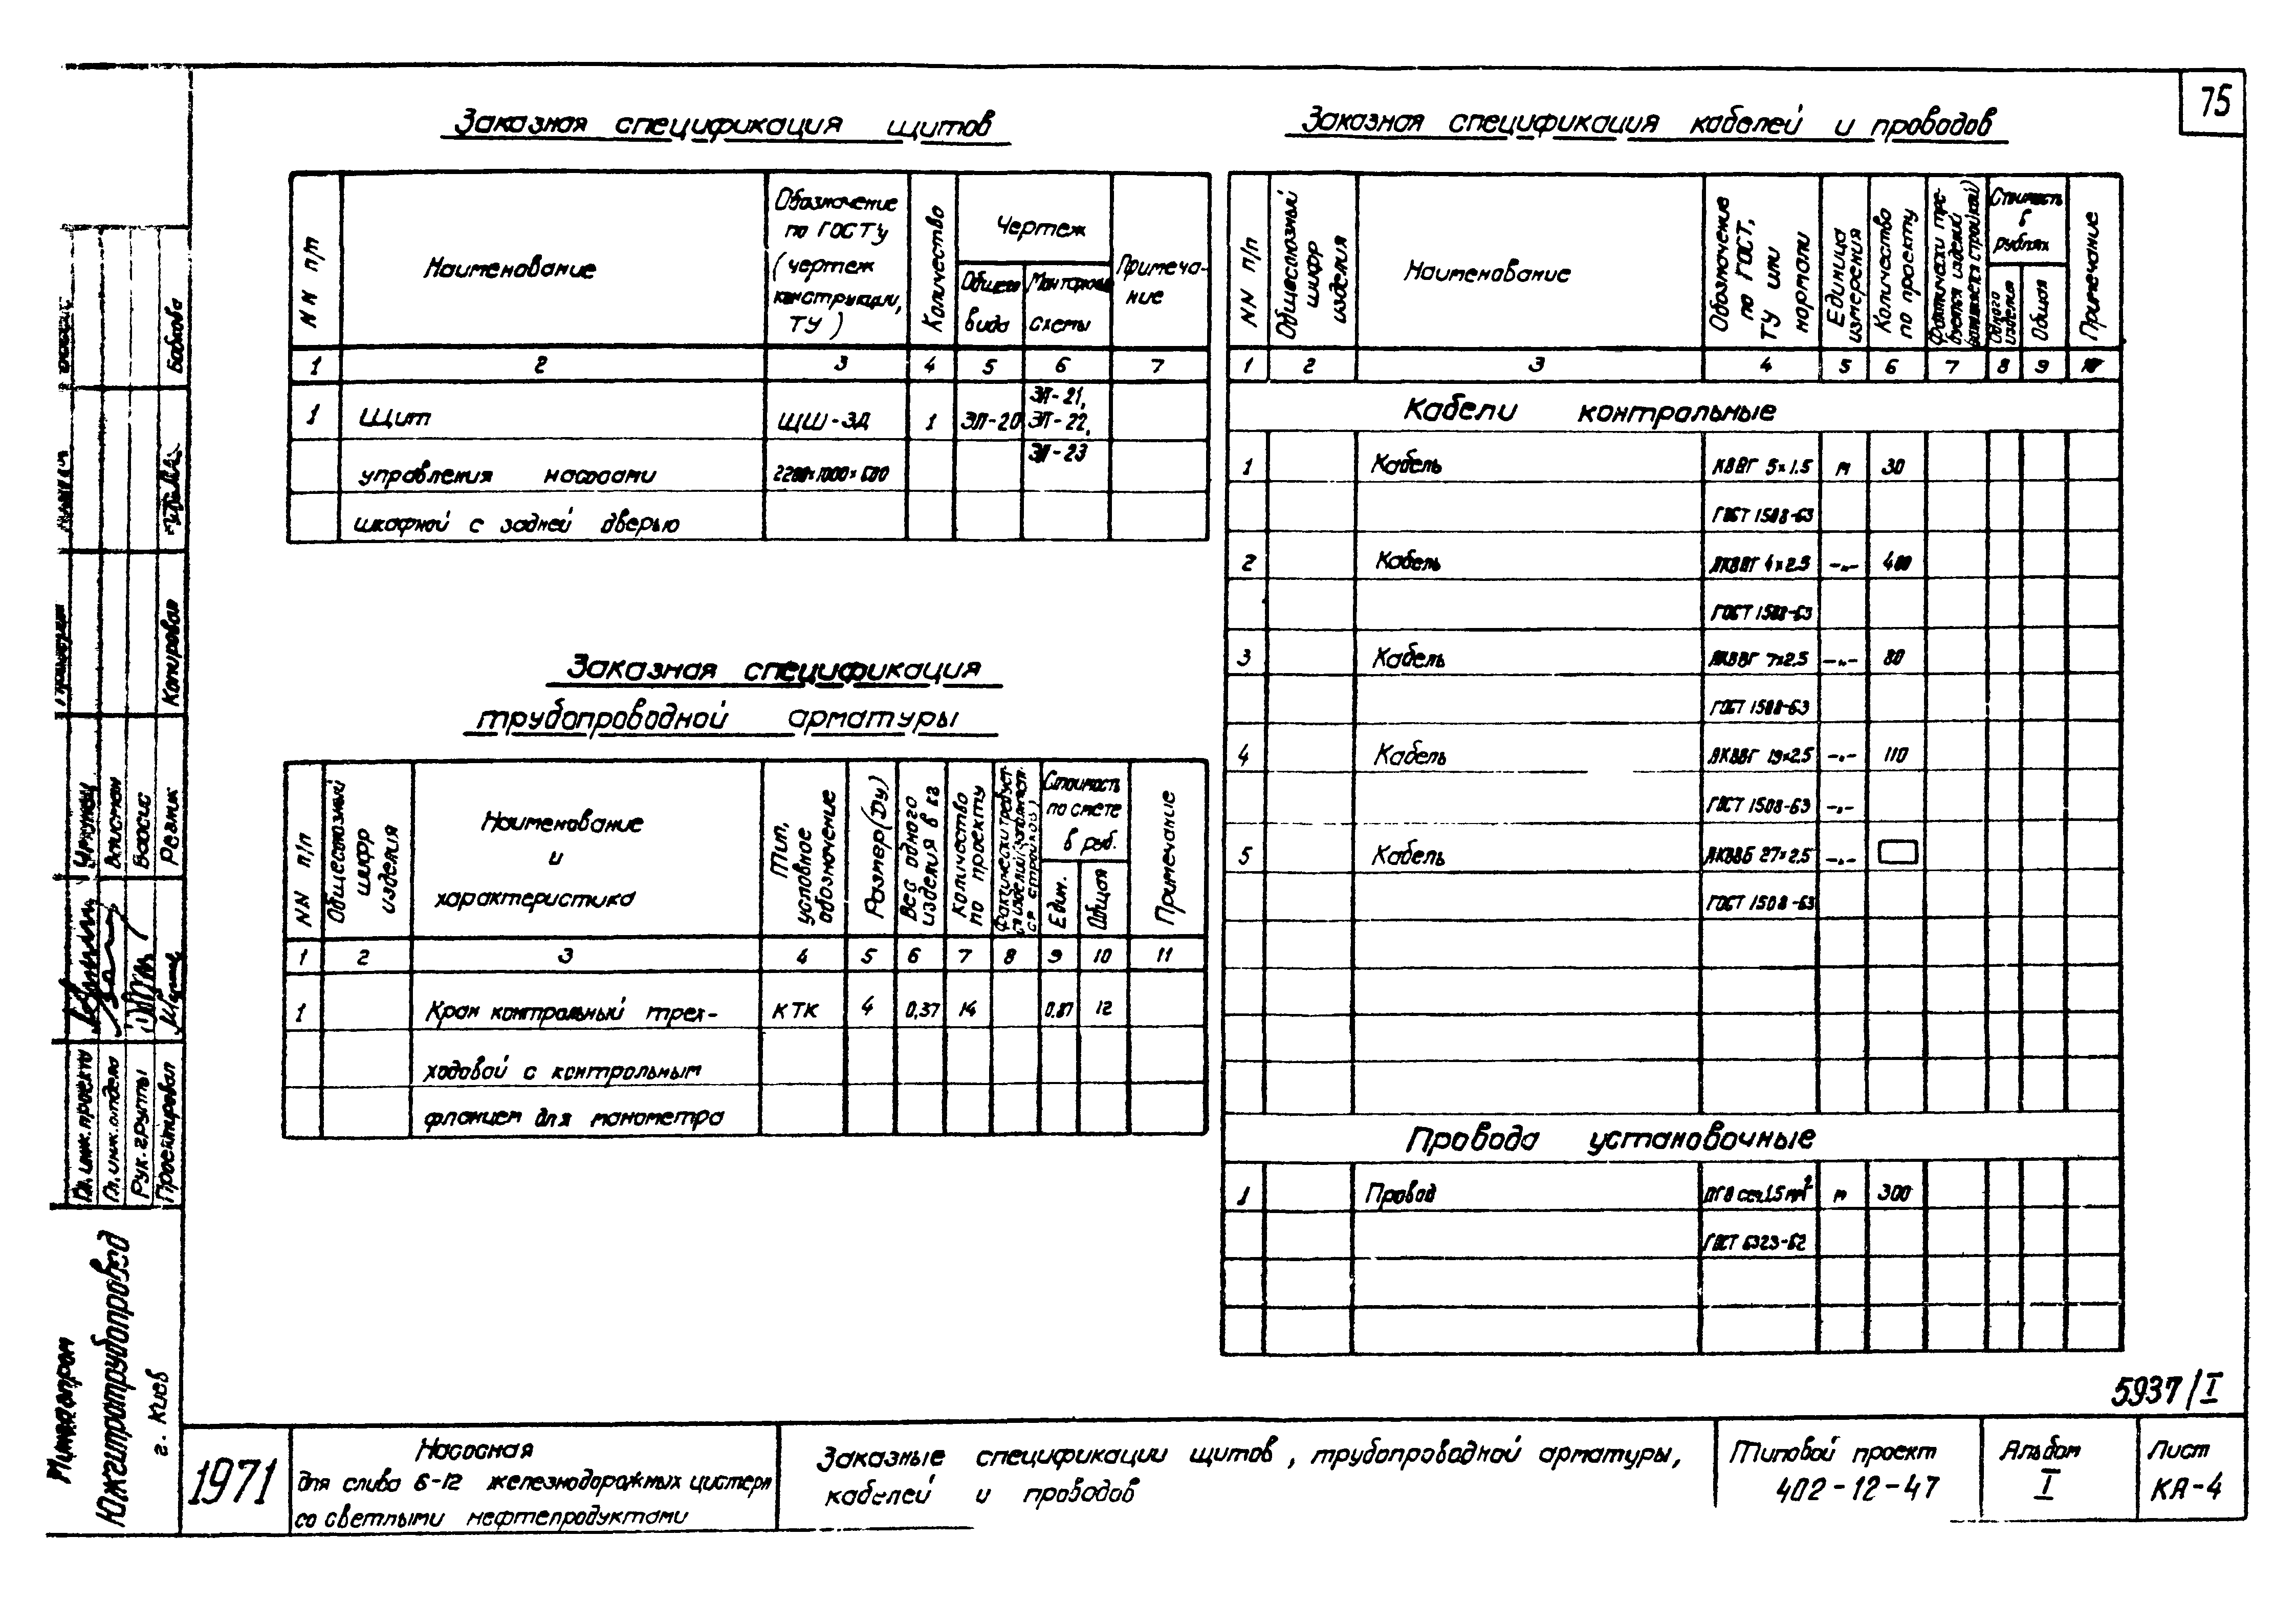 75
Заказная спецификация щитов
NN п/п
Наименование
Обозначение по ГОСТу (чертеж конструкции, ТУ)
Количество
Чертеж
Общего вида
Монтажной схемы
Примечание
1 2 3 4 5 6 7
1 Щит ЩШ-ЗД 1 ЭП-20 ЭП-21, ЭП-22, ЭП-23
управления насосами 2200×1000×600
шкафной с задней дверью
Заказная спецификация
трубопроводной арматуры
NN п/п
Общесоюзный шифр изделия
Наименование и характеристика
Тип, условное обозначение
Размер (Dу)
Вес одного изделия в кг
Количество по проекту
Стоимость по смете в руб.
Един.
Общая
Примечание
1 2 3 4 5 6 7 8 9 10 11
1 Кран контрольный трех- КТК 4 0,37 14 0,87 12
ходовой с контрольным
фланцем для манометра
Заказная спецификация кабелей и проводов
NN п/п
Общесоюзный шифр изделия
Наименование
Обозначение по ГОСТ, ТУ или нормали
Единица измерения
Количество по проекту
Фактически требуется изделий (заполняется стройкой)
Стоимость в рублях
Одного изделия
Общая
Примечание
1 2 3 4 5 6 7 8 9 10
Кабели контрольные
1 Кабель КВВГ 5×1.5 м 30
ГОСТ 1508-63
2 Кабель АКВВГ 4×2.5 -"- 400
ГОСТ 1508-63
3 Кабель АКВВГ 7×2.5 -"- 80
ГОСТ 1508-63
4 Кабель АКВВГ 19×2.5 -"- 110
ГОСТ 1508-63 -"-
5 Кабель АКВВБ 27×2.5 -"-
ГОСТ 1508-63
Провода установочные
1 Провод ПГВ сеч.1.5 мм² м 300
ГОСТ 6323-62
5937/I
1971
Насосная
для слива 6-12 железнодорожных цистерн
со светлыми нефтепродуктами
Заказные спецификации щитов, трубопроводной арматуры,
кабелей и проводов
Типовой проект
402-12-47
Альбом
I
Лист
КА-4
Южгипротрубопровод
г. Киев
Гл. инж. проекта
Гл. инж. отдела
Рук. группы
Проектировал
Вайсман
Резник
Копировал
Бабкова